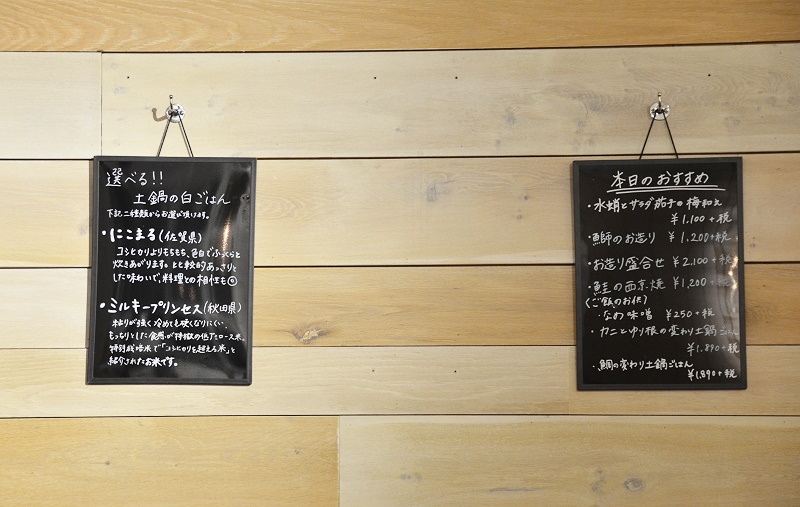 選べる!!
土鍋の白ごはん
下記二種類からお選び頂けます。
・にこまる(佐賀県)
コシヒカリよりもちもち、色白でふっくらと
炊きあがります。比較的あっさりと
した味わいで、料理との相性も◎
・ミルキープリンセス(秋田県)
粘りが強く冷めても硬くなりにくい、
もっちりとした食感が特徴の低アミロース米。
特別栽培米で「コシヒカリを超える米」と
紹介されたお米です。
本日のおすすめ
・水蛸とサラダ茄子の梅和え
¥1,100+税
・鰤のお造り ¥1,200+税
・お造り盛合せ ¥2,100+税
・鮭の西京焼 ¥1,200+税
(ご飯のお供)
・なめ味噌 ¥250+税
・カニとゆり根の変わり土鍋ごはん
¥1,890+税
・鯛の変わり土鍋ごはん
¥1,890+税